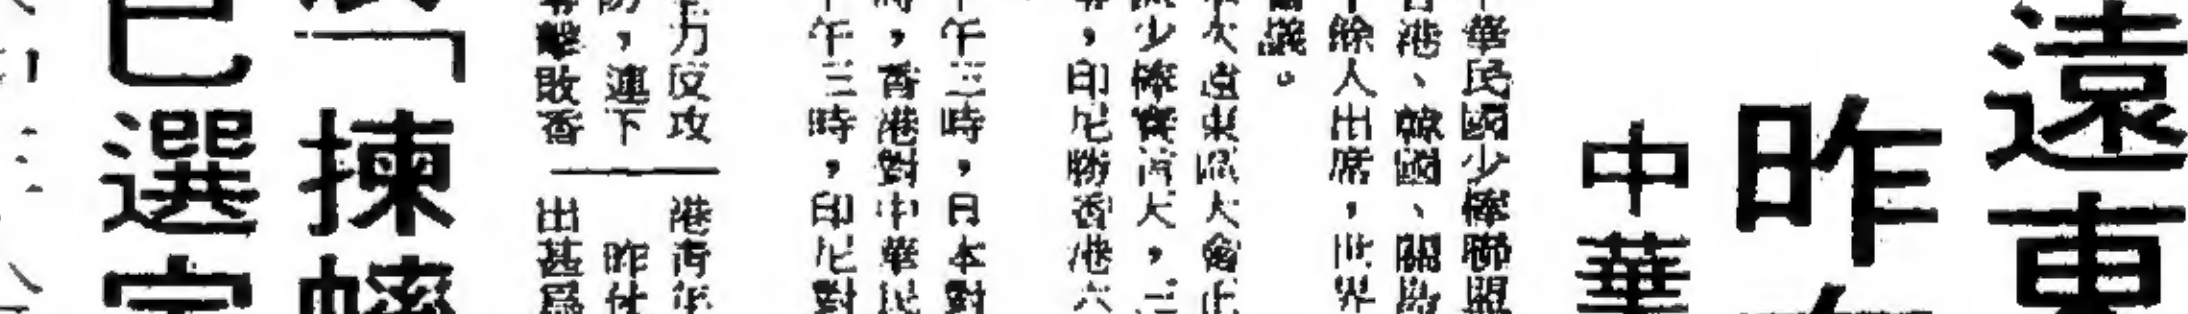 遠東
昨
中華
華民國少棒聯盟
香港、韓國、關島
餘人出席，世界
議。
次遠東區大會由
少棒賽首天，三
，印尼勝香港六
午三時，日本對
時，香港對中華民
午三時，印尼對
力反攻
，連下
擊敗香
港青年
昨仗
出甚爲
「揀蟀
已選定